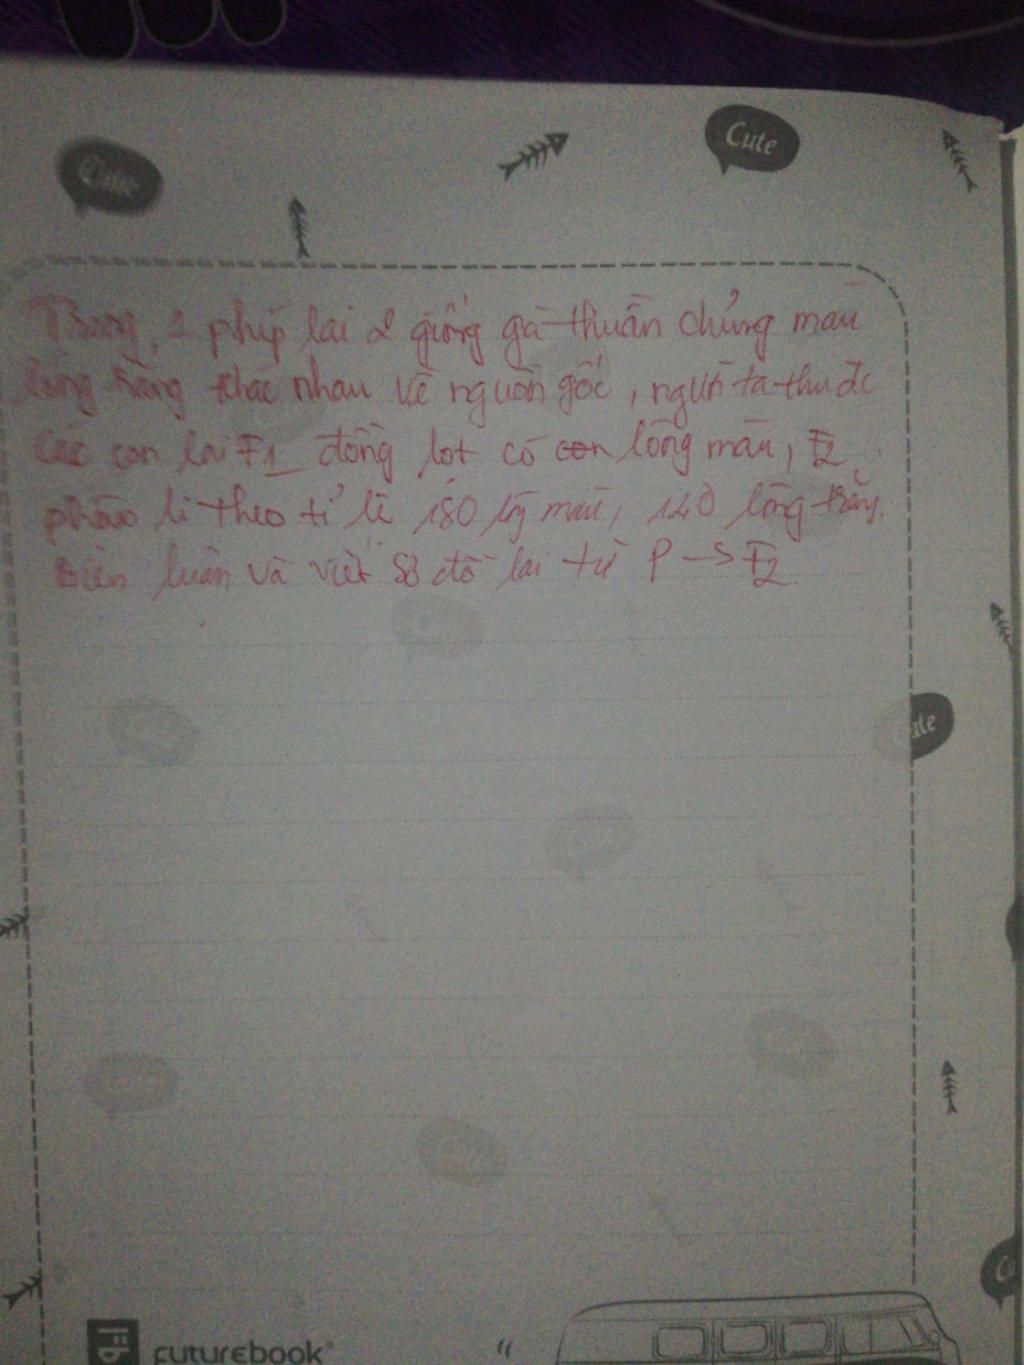 Cute
Cute
Trong 1 phép lai 2 giống gà thuần chủng màu
lông trắng khác nhau về nguồn gốc, người ta thu đc
các con lai F1 đồng lọt có con lông màu, F2
phân li theo tỉ lệ 180 lg màu, 140 lông trắng.
Biện luận và viết sơ đồ lai từ P → F2
Cute
FUTUREBOOK